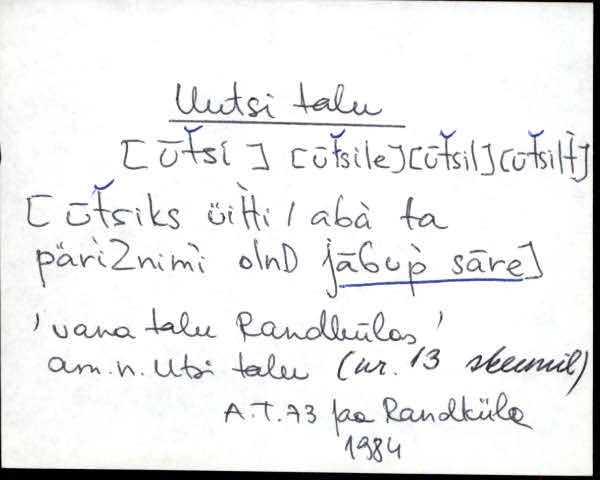 Uutsi talu
[ūt̆si] [ūt̆sile] [ūt̆sil] [ūt̆silt̀]
[ūt̆siks üit̀ti / abà ta
pärìZnimì olnD jāGup̀ sāre]
'vana talu Randkülas'
am.n. Utsi talu (nr. 13 skeemil)
A.T. 73 ja Randküla
1984